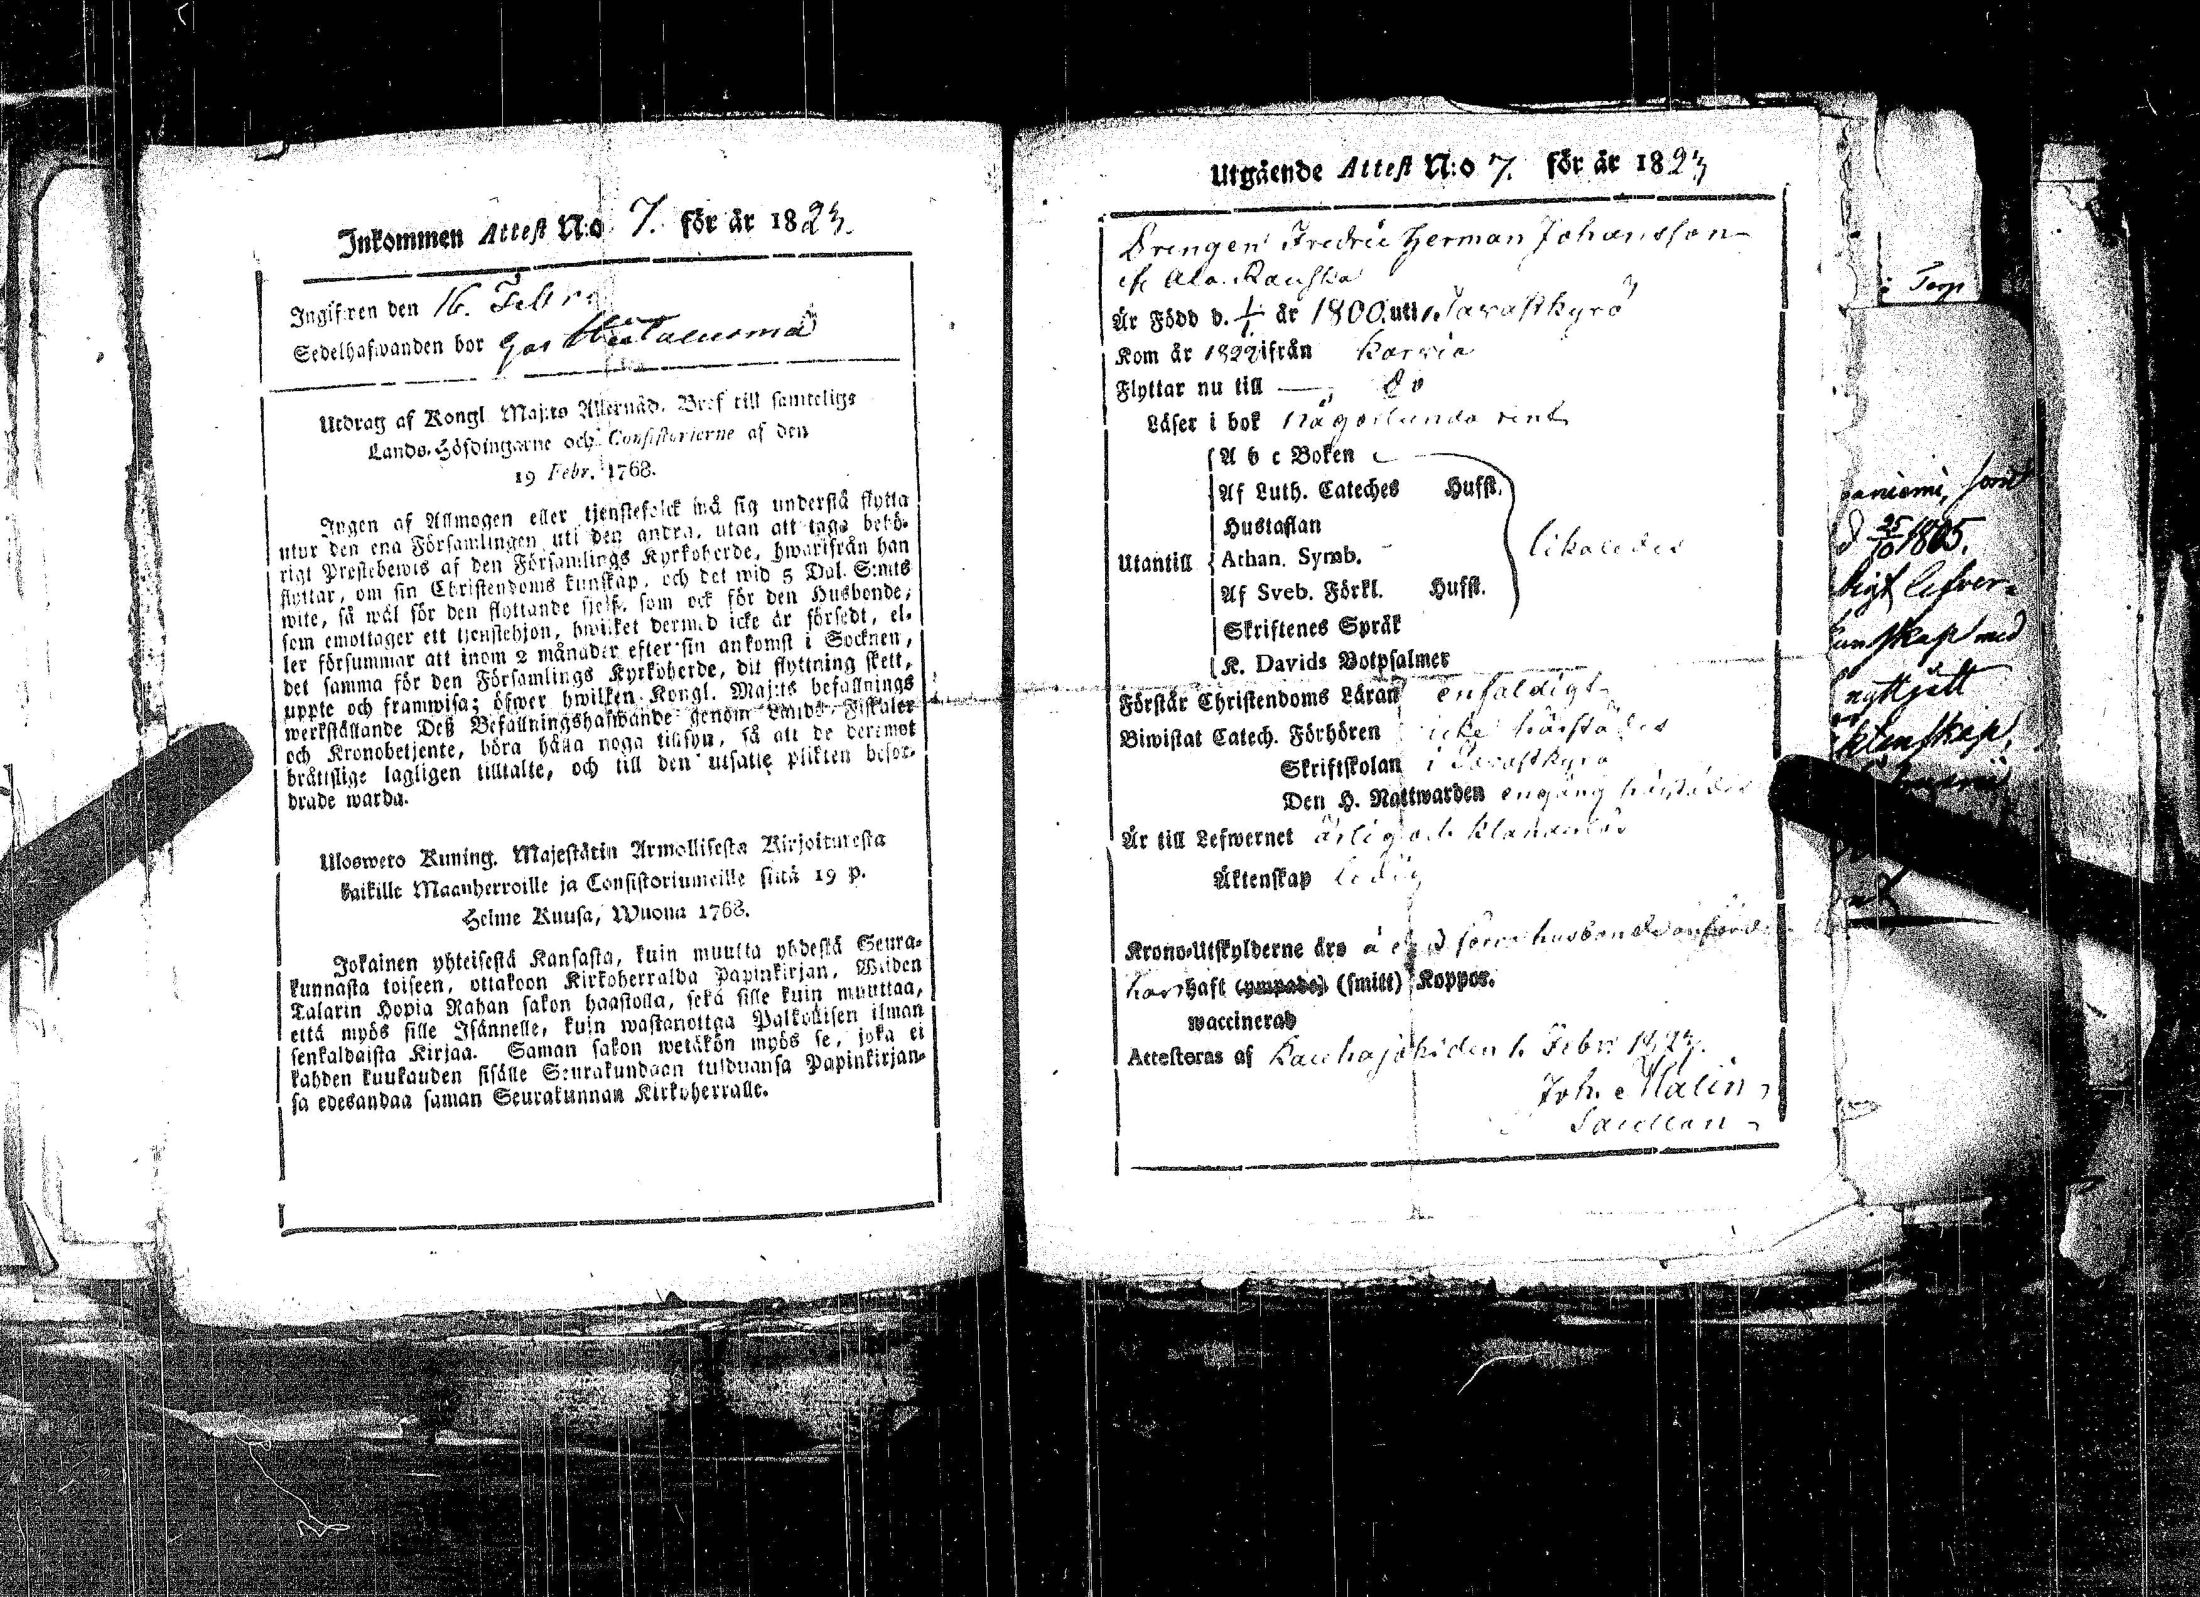 Inkommen Attest N:o 7. för år 1823.
Ingifwen den 16. Febr.
Sedelhafwanden bor
Utdrag af Kongl. Maj:ts Allernåd. Bref till samtelige
Lands-Höfdingarne och Consistorierne af den
19 Febr. 1768.
Ingen af Allmogen eller tjenstefolck må sig understå flytta
utur den ena Församlingen uti den andra, utan att taga behö-
rigt Prestebewis af den Församlings Kyrkoherde, hwarifrån han
flyttar, om sin Christendoms kunskap, och det wid 5 Dal. S:mts
wite, så wäl för den flyttande sjelf, som ock för den Husbonde,
som emottager ett tjenstehjon, hwilket dermed icke är försedt, el-
ler försummar att inom 2 månader efter sin ankomst i Socknen,
det samma för den Församlings Kyrkoherde, dit flyttning skett,
uppte och framwisa; öfwer hwilken Kongl. Maj:ts befallnings
werkställande Deß Befallningshafwande genom Lands-Fiskaler
och Kronobetjente, böra hålla noga tillsyn, så att de deremot
bråttslige lagligen tilltalte, och till den utsatte plikten befor-
drade warda.
Ulosweto Kuning. Majestätin Armollisesta Kirjoituresta
kaikille Maanherroille ja Consistoriumeille siitä 19 p.
Helme Kuusa, Wuonna 1768.
Jokainen yhteisestä Kansasta, kuin muutta yhdestä Seura-
kunnasta toiseen, ottakoon Kirkoherralda Papinkirjan, Wiiden
Talarin Hopia Rahan sakon haastolla, sekä sille kuin muuttaa,
että myös sille Isännelle, kuin wastanottaa Palkollisen ilman
senkaldaista Kirjaa. Saman sakon wetäkön myös se, joka ei
kahden kuukauden sisälle Seurakundaan tulduansa Papinkirjan-
sa edesandaa saman Seurakunnan Kirkoherralle.
Utgående Attest N:o 7. för år 1823
Drengen Fredric Herman Johansson
Är Född d. 1/1 år 1800. uti Tavastkyrö
Kom år 1822 ifrån Karvia
Flyttar nu till — do
Läser i bok någorlunda rent
A b c Boken
Af Luth. Cateches Husst.
Hustaflan
Utantill Athan. Symb. likaledes
Af Sveb. Förkl. Husst.
Skriftenes Språk
K. Davids Botpsalmer
Förstår Christendoms Läran enfaldigt
Biwistat Catech. Förhören icke härstädes
Skriftskolan i Tavastkyrö
Den H. Nattwarden engång härstädes
Är till Lefwernet ärlig och klanderlös
Äktenskap ledig
Krono-Utskylderne äro å
haft (ympade) (smitt) Koppor.
waccinerad
Attesteras af Kauhajoki den 1. Febr. 1823.
Joh. Malin
Sacellan
Torp
som
d 25/10 1805.
ligt lefver-
unskap med
nattjätt
ktenskap,